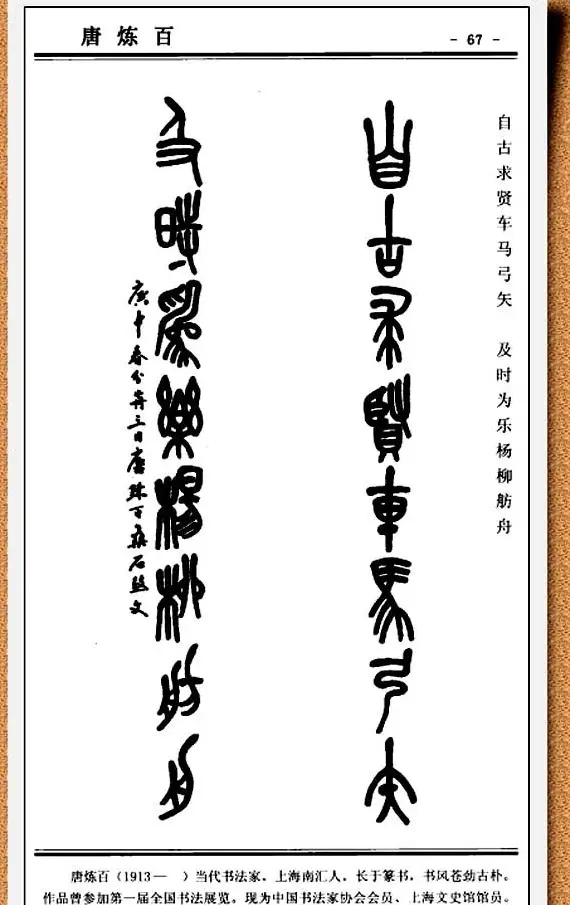 唐炼百
- 67 -
自古求贤车马弓矢 及时为乐杨柳舫舟
自古求賢車馬弓矢
及時為樂楊柳舫舟
庚申春分前三日唐炼百集石鼓文
唐炼百（1913— ）当代书法家。上海南汇人。长于篆书，书风苍劲古朴。
作品曾参加第一届全国书法展览。现为中国书法家协会会员、上海文史馆馆员。